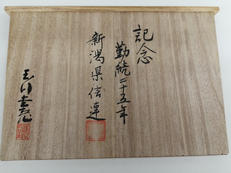 記念
勤続二十五年
新潟県信連